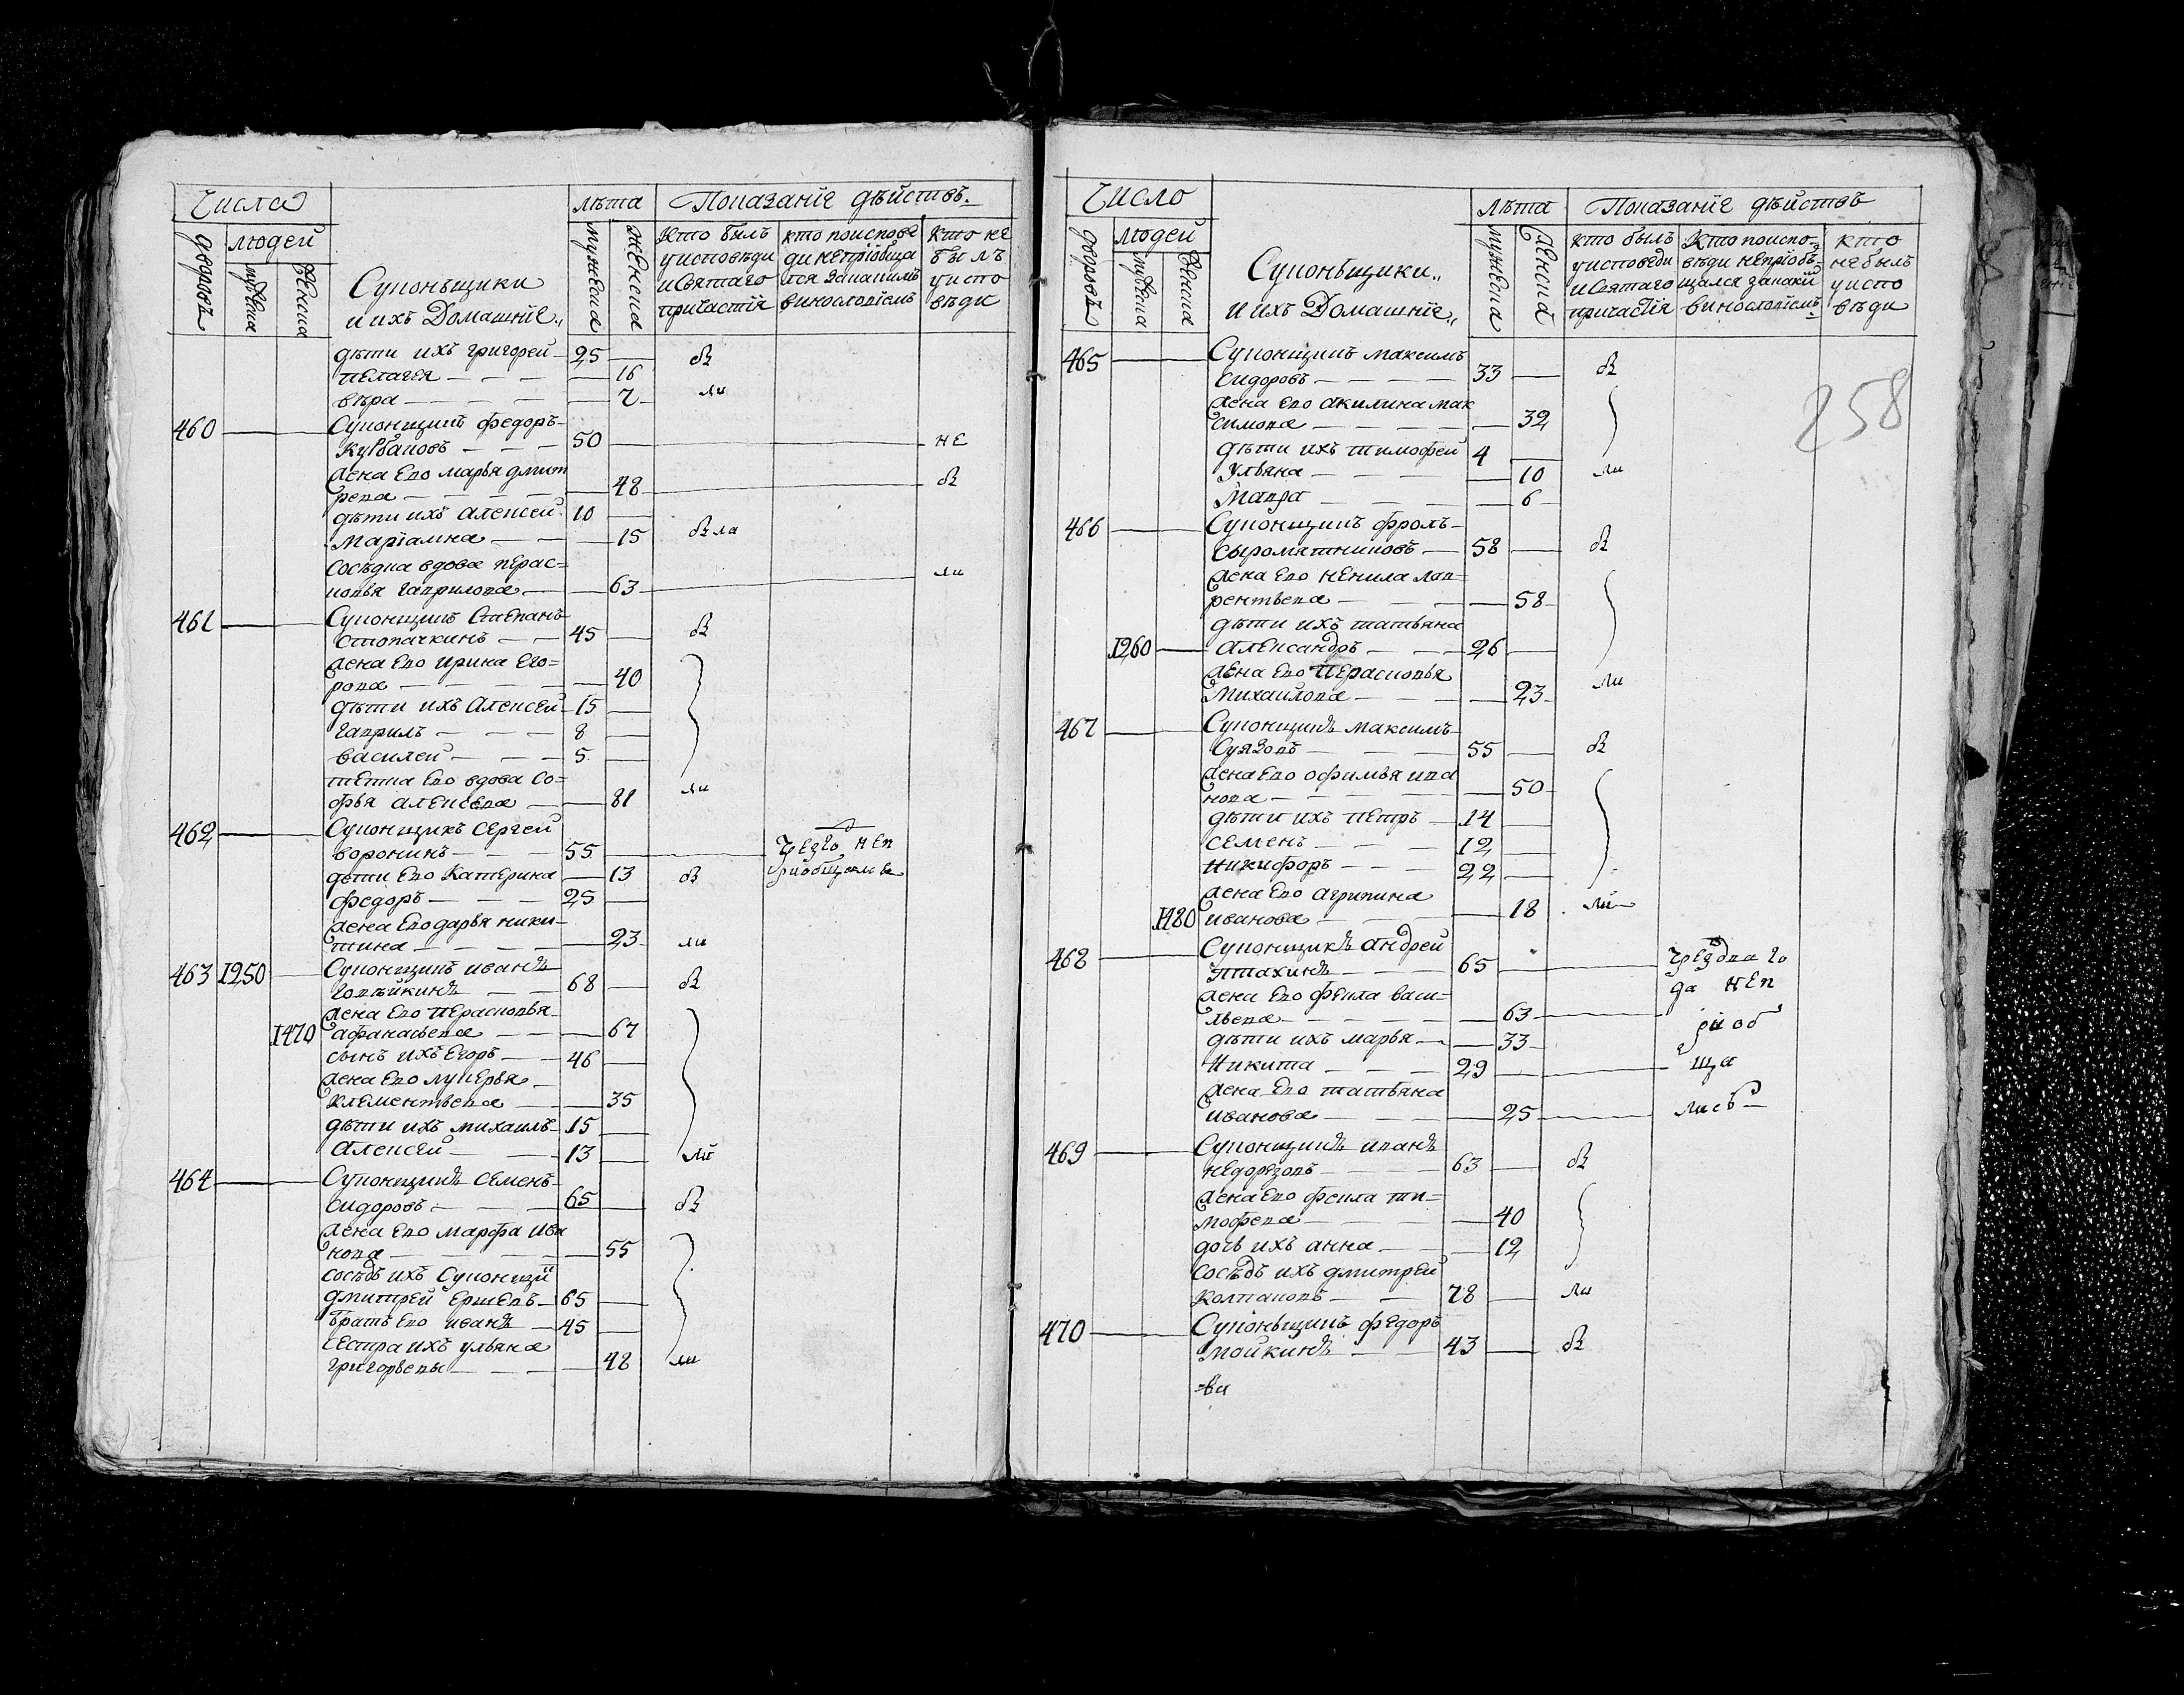 Числа
Людей
дворовъ
мужеска
женска
Суконьщики
и ихъ Домашнiе
лѣта
мужеска
женска
Показанiе дѣйствъ
Кто былъ
у исповѣди
и святаго
причастiя
кто поиспове
ди непрiобща
лся за какимъ
винословiемъ
Кто не
былъ
у испо
вѣди
дѣти ихъ григорей 25 бы
пелагея 16
вѣра 7 ли
460 Суконщикъ федоръ
Курбановъ 50 не
жена ево марья дмит
рева 48 бы
дѣти ихъ алексей 10
марiамна 15 была
сосѣдка вдова перас=
ковья гаврилова 63 ли
461 Суконщикъ Степанъ
Стопачкинъ 45 бы
жена ево ирина его=
рова 40
дѣти ихъ алексей 15
гаврилъ 8
василей 5
тетка ево вдова со=
фья алексева 81 ли
462 Суконщикъ Сергей
воронинъ 55 неп
рiобщалься
дети ево катерина 13 бы
федоръ 25
жена ево дарья ники=
тина 23 ли
463 1250 Суконщикъ иванъ
голѣйкинъ 68 бы
жена ево перасковья
1470 афанасьева 67
сынъ ихъ егоръ 46
жена ево лукерья
клементьева 35
дѣти ихъ михаилъ 15
алексей 13 ли
464 Суконщикъ семенъ
сидоровъ 65 бы
жена ево марфа ива
нова 55
сосѣдъ ихъ Суконщи
дмитрей ершевъ 65
братъ ево иванъ 45
сестра ихъ ульяна
григорьевы 48 ли
Число
Людей
дворовъ
мужеска
женска
Суконьщики
и ихъ Домашнiе
Лѣта
мужеска
женска
Показанiе дѣйствъ
кто былъ
у исповеди
и святаго
причастiя
Кто поиспо-
вѣди непрiобъ=
щался за какiй
винословiемъ
кто
небылъ
у испо
вѣди
258
465 Суконщикъ максимъ
сидоровъ 33 бы
жена ево акилина мак
симова 32
дѣти ихъ тимофей 4
ульяна 10 ли
мавра 6
466 Суконщикъ фролъ
сыромятниковъ 58 бы
жена ево ненила лав=
рентьева 58
дѣти ихъ татьяна
1260 александръ 26
жена ево перасковья
михайлова 23 ли
467 Суконщикъ максимъ
Суязовъ 55 бы
жена ево офимья ива
нова 50
дѣти ихъ петръ 14
семенъ 12
никифоръ 22
жена ево агрипина
1480 иванова 18 ли
468 Суконщикъ андрей
птахинъ 65 чрездва го
да неп
жена ево фекла васи=
льева 63
рiоб
дѣти ихъ марья 33
никита 29 ща
жена ево татьяна
иванова 25 лись
469 Суконщикъ иванъ
недорезовъ 63 бы
жена ево фекла ти=
мофева 40
дочь ихъ анна 12
сосѣдъ ихъ дмитрей
колпаковъ 78 ли
470 Суконьщикъ федоръ
мойкинъ 43 бы